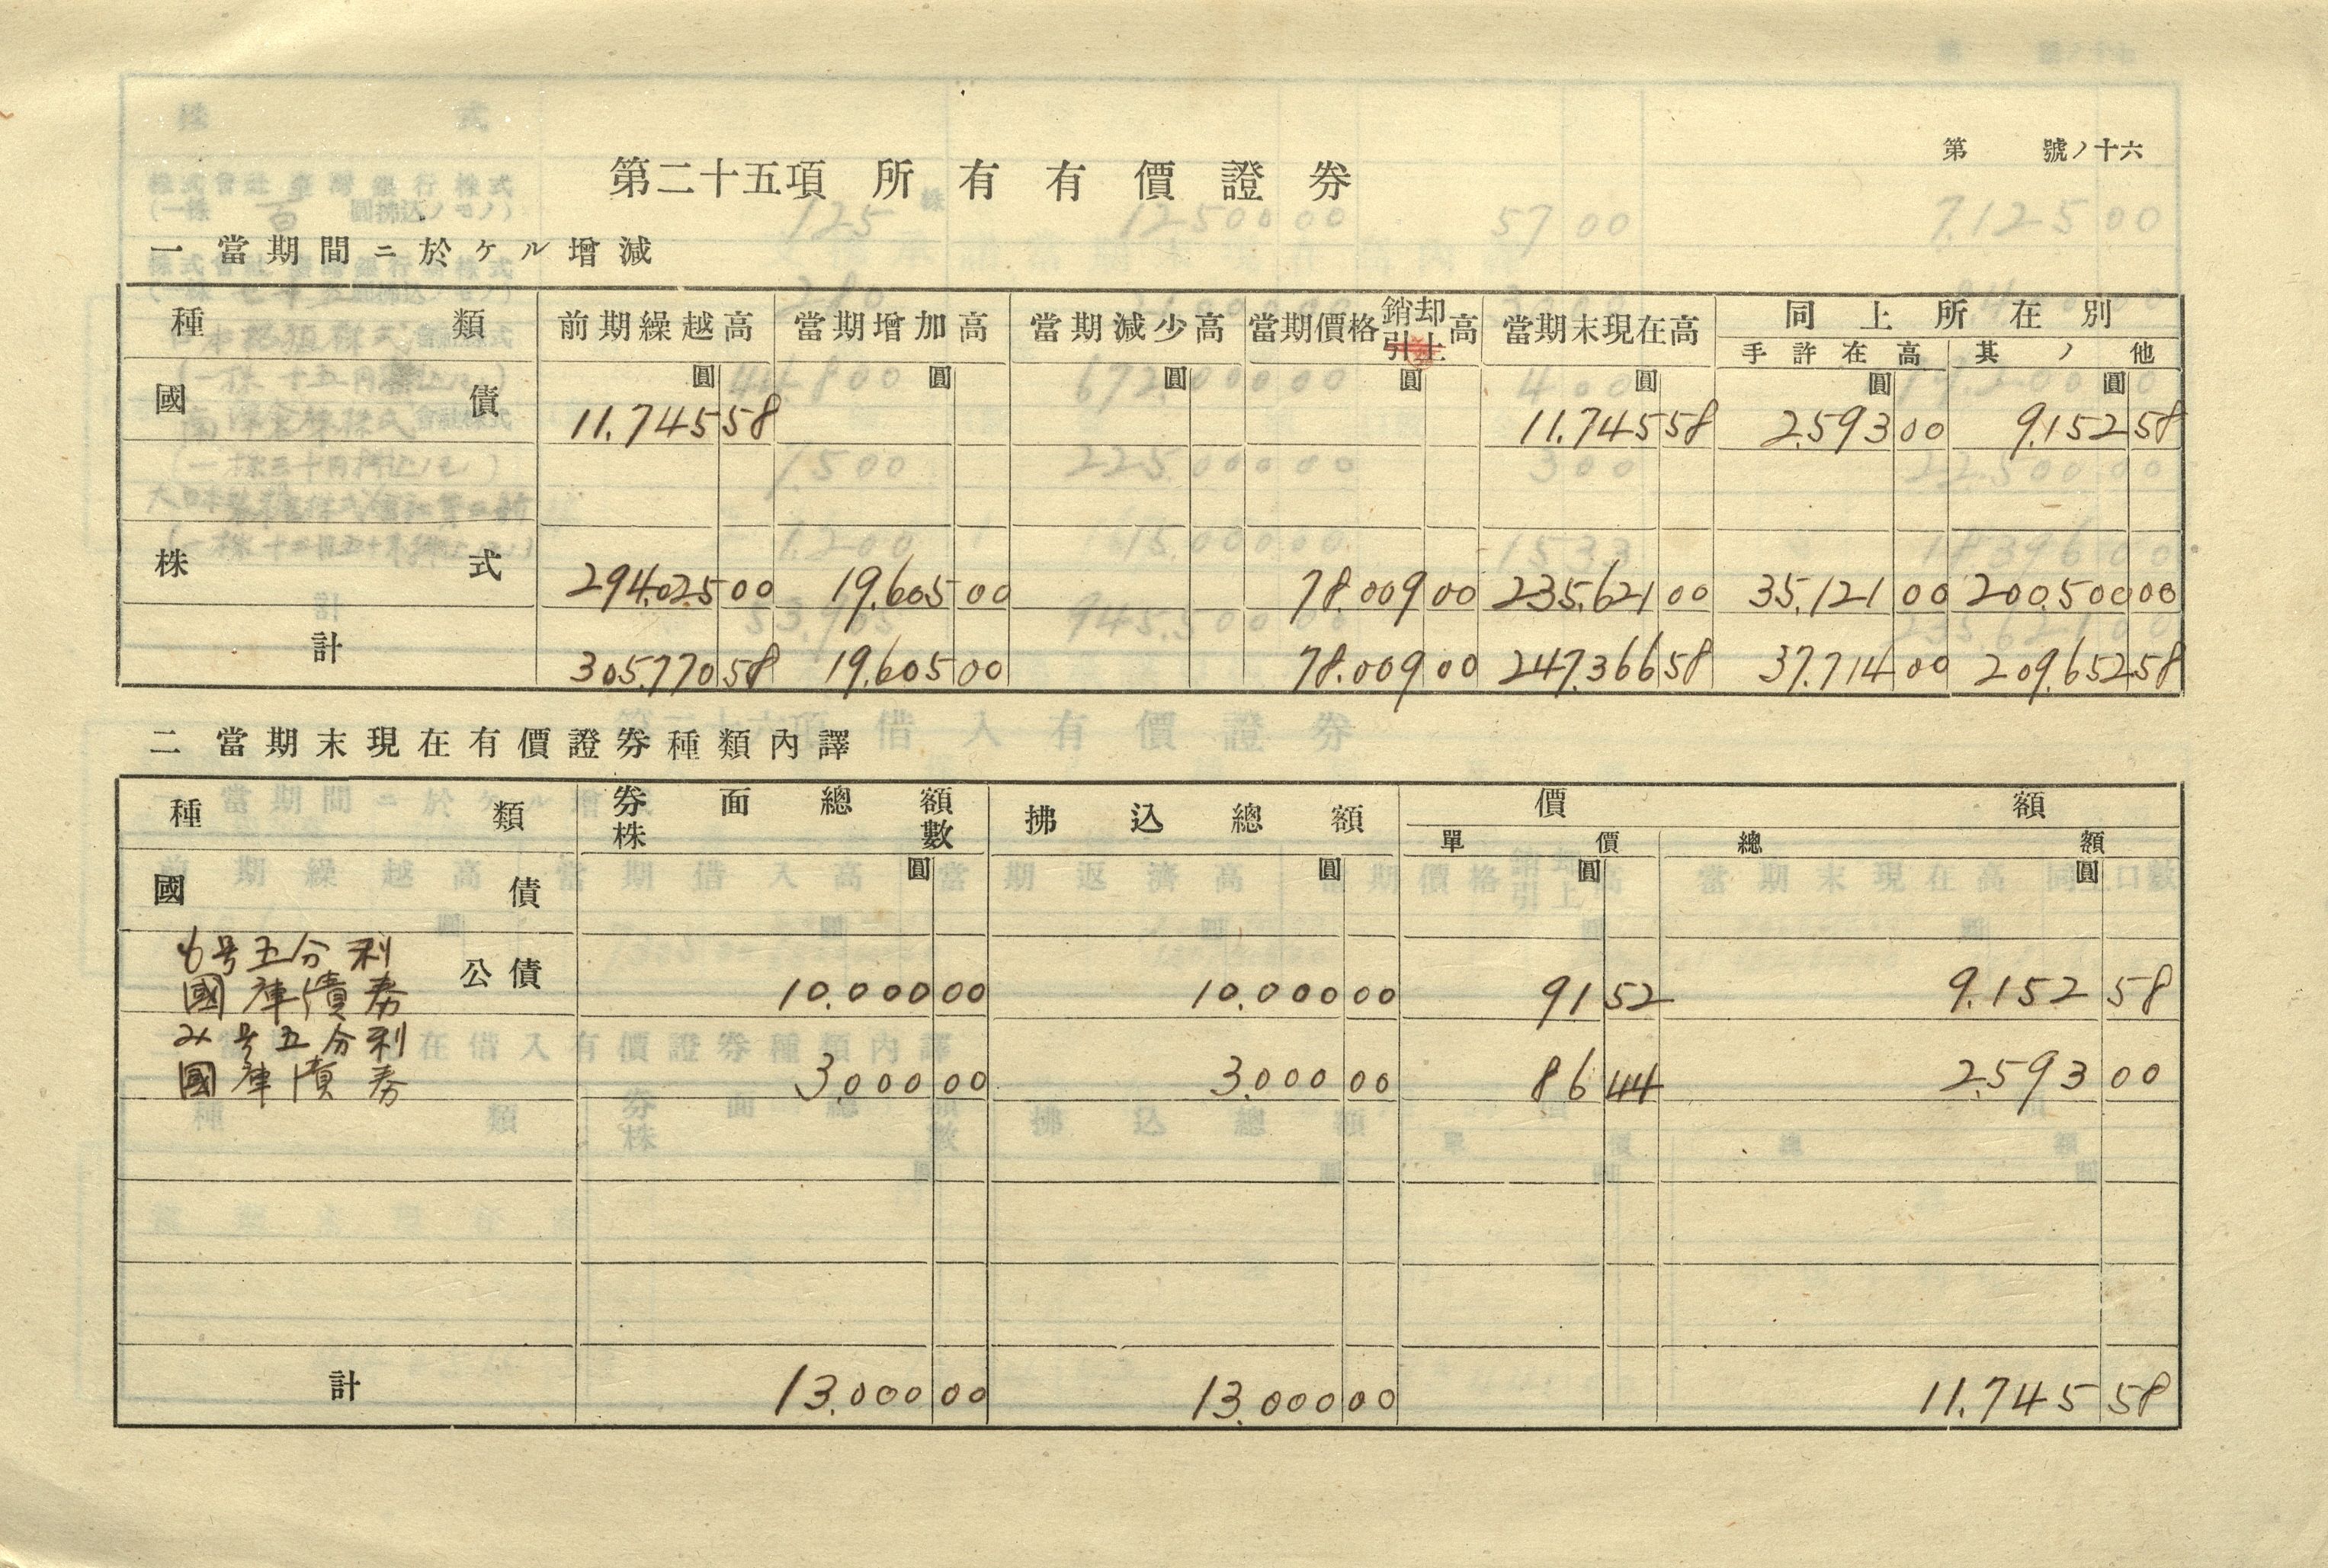 第 號ノ十六
第二十五項 所有有價證券
一 當期間ニ於ケル增減
種類 前期繰越高 當期增加高 當期減少高 當期價格銷却引上高 當期末現在高 同上所在別
手許在高 其ノ他
圓 圓 圓 圓 圓 圓 圓
國債 11.745 58 11.745 58 2.593 00 9.152 58
株式 294.025 00 19.605 00 78.009 00 235.621 00 35.121 00 200.500 00
計 305.770 58 19.605 00 78.009 00 247.366 58 37.714 00 209.652 58
二 當期末現在有價證券種類內譯
種類 券面總額 株數 拂込總額 價額
單價 總額
國債 圓 圓 圓 圓
も号五分利
國庫債券 公債 10.000 00 10.000 00 91 52 9.152 58
み号五分利
國庫債券 3.000 00 3.000 00 86 44 2.593 00
計 13.000 00 13.000 00 11.745 58